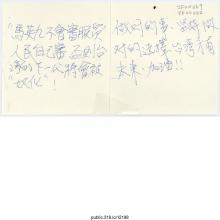 馬英九不會審服貿
人民自己審 否則台
灣的下一代將會被
"奴化"!
做好的事、當好做
對的選擇,台灣有
未來,加油!!
public.318.io/12198